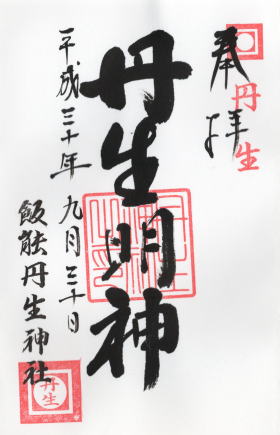 奉拝
丹生
丹生明神
平成三十年 九月三十日
飯能丹生神社
丹生